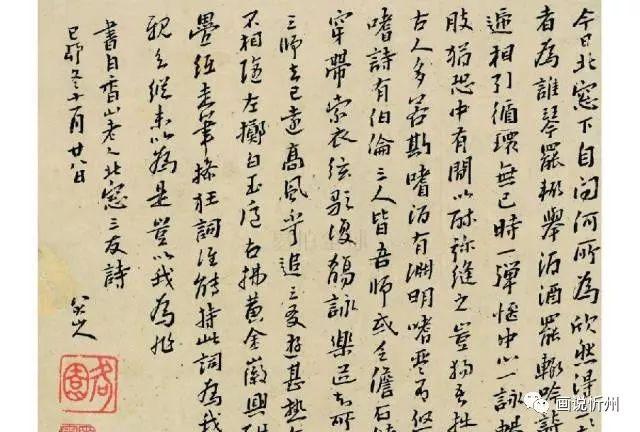 今日北窓下自問何所為欣然得三
者為誰琴罷輒舉酒酒罷輒吟詩
遞相引循環無已時一彈愜中心一詠暢
肢猶恐中有間以酎彌縫之豈獨吾拙
古人多若斯嗜酒有淵明嗜琴有
嗜詩有伯倫三人皆吾師或乏儋石
穿帶索衣弦歌復觴詠樂道知所
三師去已遠高風不可追三友遊甚熟
不相隨左擲白玉卮右拂黃金徽興酣
疊紙走筆操狂詞誰能持此詞為我
親知縱未以為是豈以我為非
書白香山老人北窓三友詩
己卯冬十一月廿八日
八大山人
画说忻州